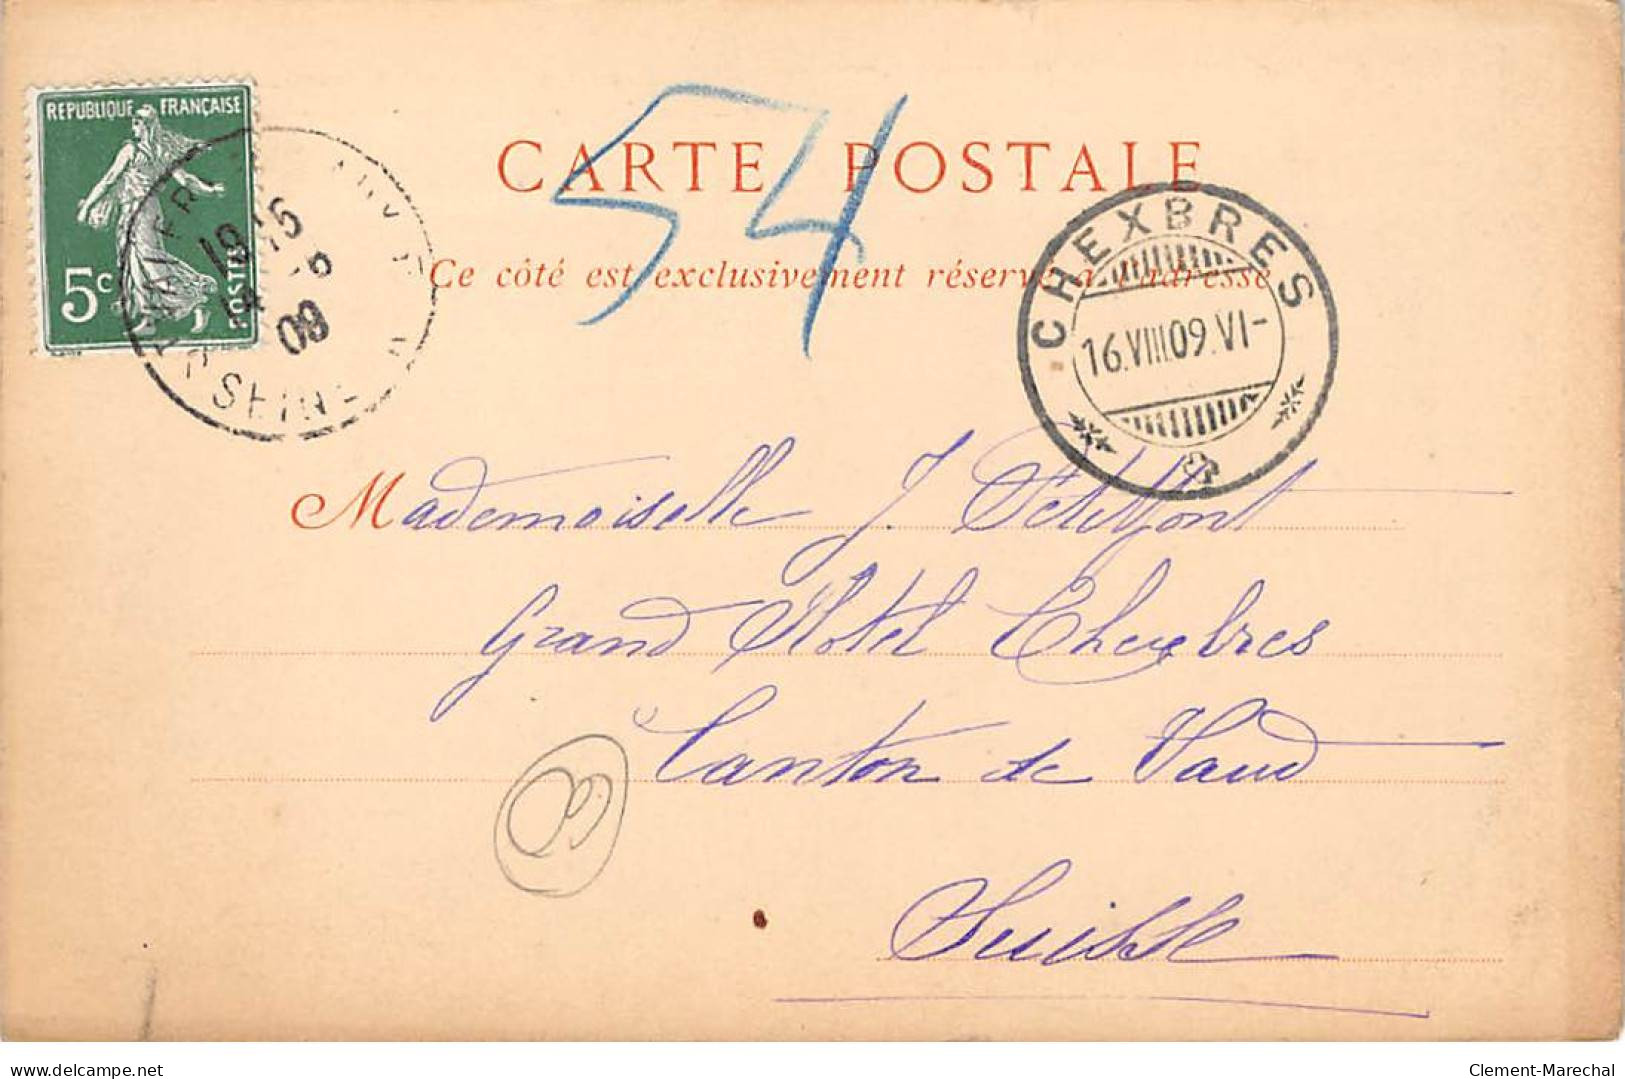 REPUBLIQUE FRANÇAISE
5c POSTES
18 15
14 -8
09
SEINE
54
CARTE POSTALE
Ce côté est exclusivement réservé à l'adresse
CHEXBRES
16.VIII.09.VI-
Mademoiselle J. Petitfont
Grand Hotel Chexbres
Canton de Vaud
Suisse
Clement-Marechal